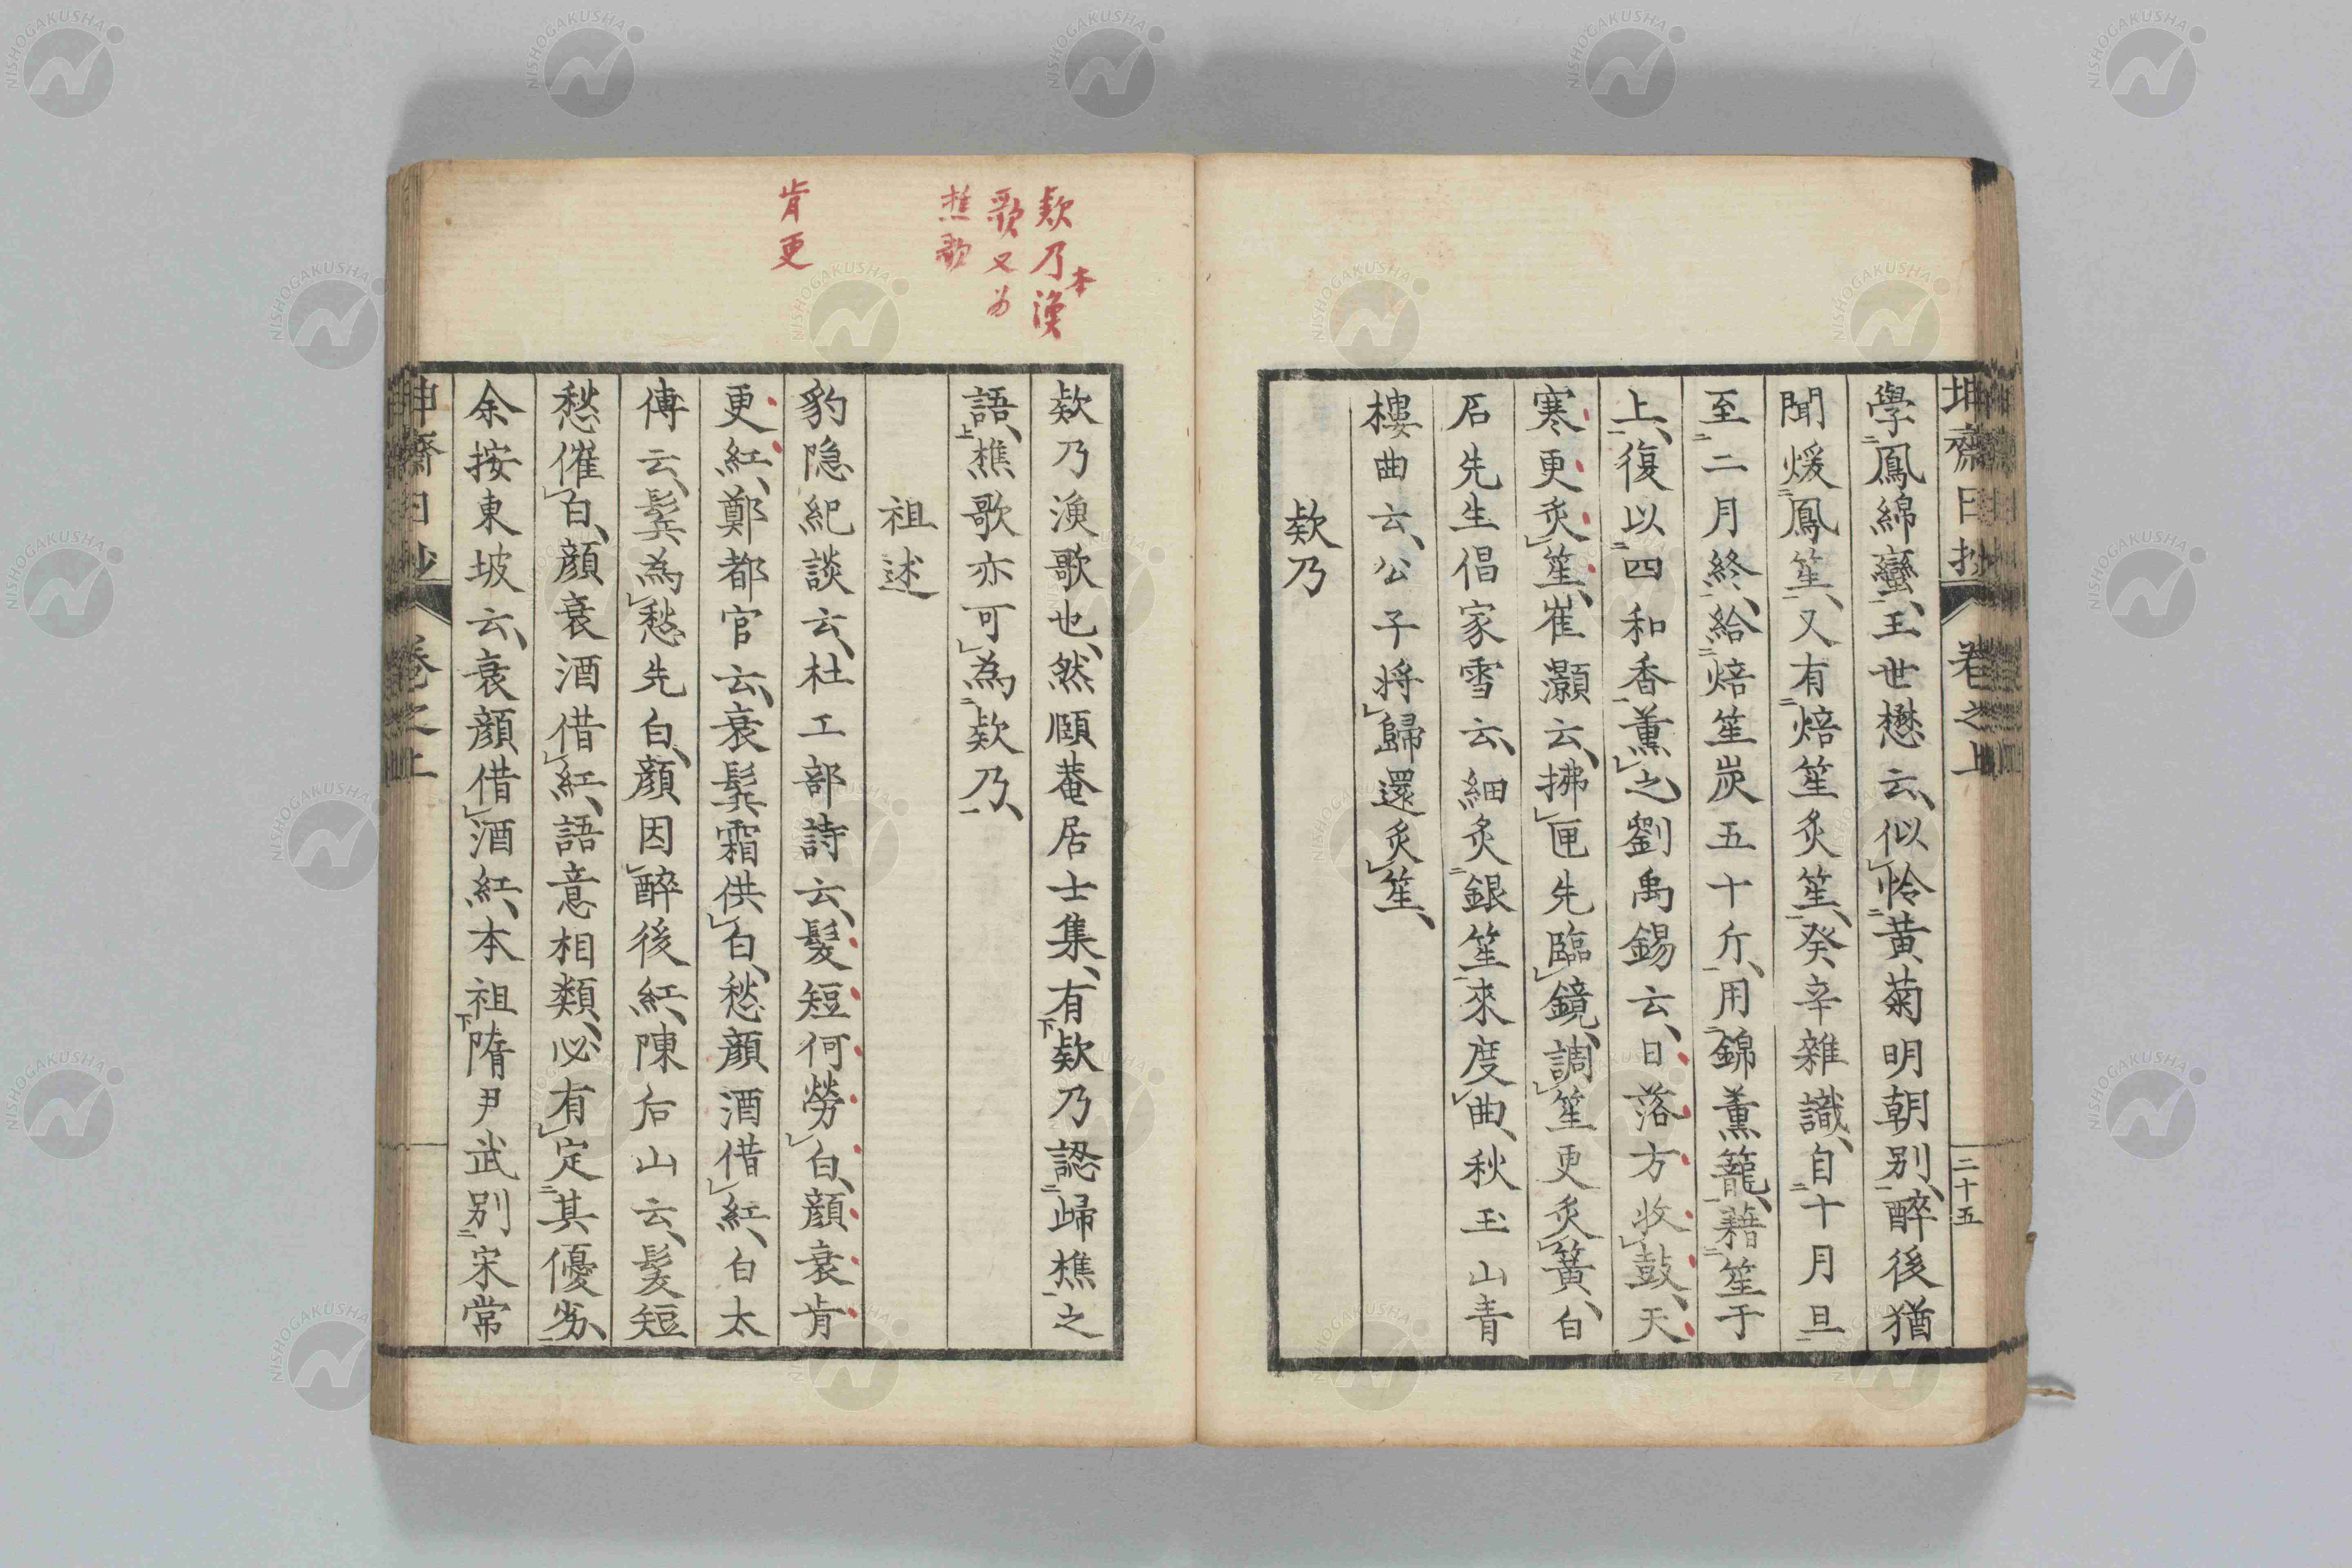 坤齋日抄
卷之上
二十五
學鳳綿蠻、王世懋云、似怜黃菊明朝別、醉後猶
聞煖鳳笙、又有焙笙炙笙、癸辛雜識、自十月旦
至二月終、給焙笙炭五十斤、用錦薰籠、藉笙于
上、復以四和香薰之劉禹錫云、日落方收鼓、天
寒更炙笙、崔灝云、拂匣先臨鏡、調笙更炙簧、白
石先生倡家雪云、細炙銀笙來度曲、秋玉山青
樓曲云、公子將歸還炙笙、
欸乃
欸乃本漁
歌又为
樵歌
肯更
欸乃漁歌也、然頤菴居士集、有欸乃認歸樵之
語、樵歌亦可為欸乃、
祖述
豹隐紀談云、杜工部詩云、髮短何勞白、顏衰肯
更紅、鄭都官云、衰鬂霜供白、愁顏酒借紅、白太
傅云、鬂為愁先白、顏因醉後紅、陳后山云、髮短
愁催白、顏衰酒借紅、語意相類、必有定其優劣、
余按東坡云、衰顏借酒紅、本祖隋尹武別宋常
坤齋日抄
卷之上